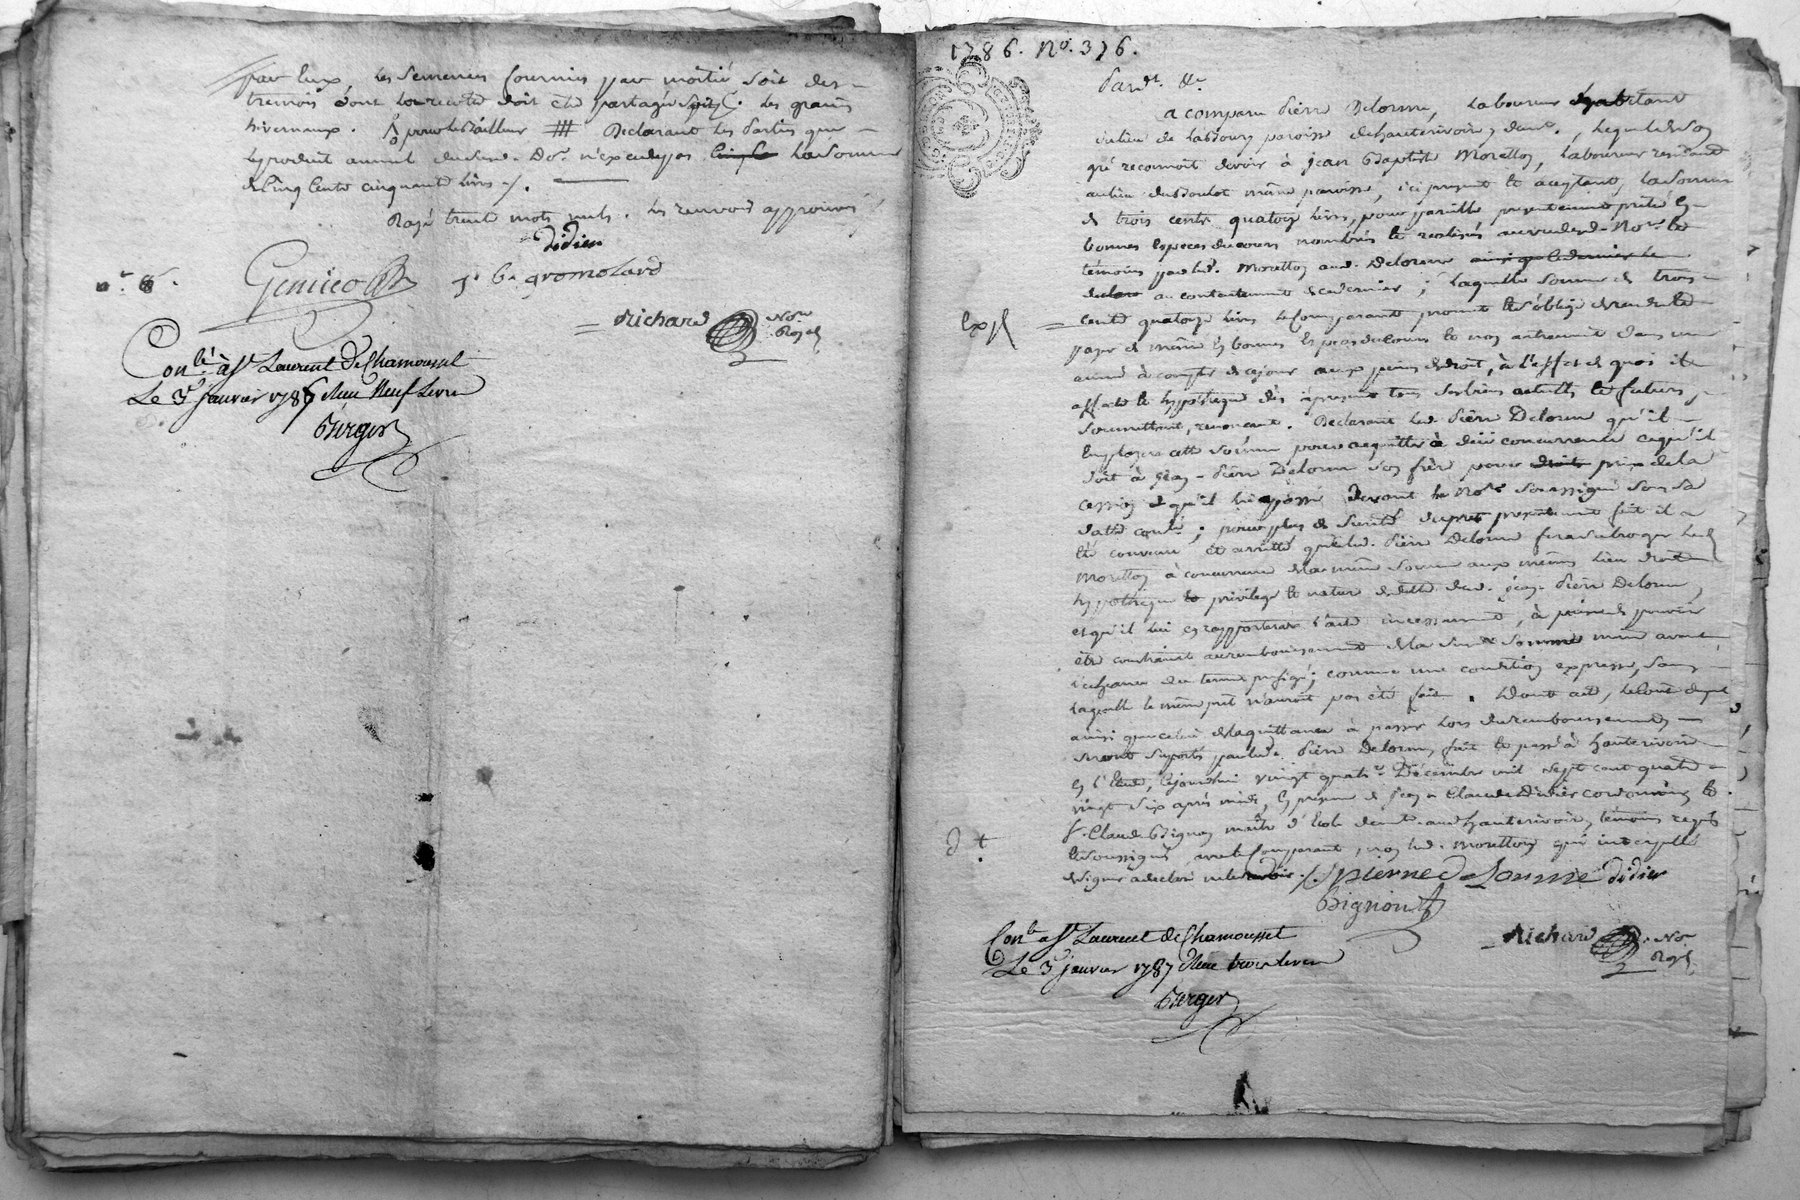 par eux les semences fournies par moitié soit des
tremois dont la recolte doit etre partagée soit des grains
hivernaux. pour le Bailleur Declarant les Parties que
le produit annuel n'excede pas la somme
de Cinq Cents cinquante livres.
Rayé trente mots nuls. les renvois approuvés
didier
Genico
J. B. gromolard
Richard Nore Royal
Conlé à St Laurent De Chamousset
Le 3 janvier 1787 Reçu Neuf Livres
Berger
1786. No. 376.
Pardt. &c
a comparu Pierre Delorme, Laboureur habitant
au lieu de paroisse de hauterivoire, lequel de son
gré reconnoit devoir à jean Baptiste Morellon, Laboureur residant
au lieu du Boulot même paroisse, ici present et acceptant, la somme
de trois cents quatorze livres, pour pareille presentement prêtée en
bonnes Especes du cours nombrées et realisées au vu dud. Nore. et
témoins par led. Morellon aud. Delorme ainsi que ce dernier le
declare au contentement de ce dernier; laquelle somme de trois
Exp
cents quatorze livres le Comparant promet et s'oblige de rendre et
payer de même en bonnes Especes du cours et non autrement dans une
année à compter de ce jour aux peines de droit, à l'effet de quoi il
affecte et hypothèque dès à present tous ses biens actuels et futurs,
soumettant, renonçant. Declarant led. Pierre Delorme qu'il
Employera cette somme pour acquitter à düe concurrence ce qu'il
doit à jean-Pierre Delorme son frère pour droits prix de la
cession qu'il lui a passé devant le Nore. soussigné sous sa
datte conlé; pour plus de sureté du prêt presentement fait il a
été convenu et arrêté que led. Pierre Delorme fera subroger led.
Morellon à concurrence de la même somme aux mêmes lieu droits
hypothèque et privilege et nature de dette dud. jean-Pierre Delorme,
et qu'il lui en rapportera l'acte incessament, à peine de pouvoir
être contraint au remboursement de la susde somme même avant
l'echeance du terme prefigé; comme une condition expresse, sans
laquelle le même prêt n'auroit pas été fait. Dont acte, le Cout duquel
ainsi que celui de la quittance à passer lors du remboursement
seront suportés par led. Pierre Delorme, fait et passé à hauterivoire
en l'Etude, cejourdhui vingt quatre Décembre mil sept cent quatre
vingt six après midi, En presence de jean Claude Didier cordonnier et
sr. Claude Bignon maître d'Ecole demt. aud hauterivoire, témoins requis
et soussignés avec le Comparant, non led. Morellon qui interpellé
de signer a declaré ne le savoir.
pierre deLorme didier
Bignon
Richard Nore Royal
Conlé a St Laurent de Chamousset
Le 3 janvier 1787 Reçu trois livres
Berger